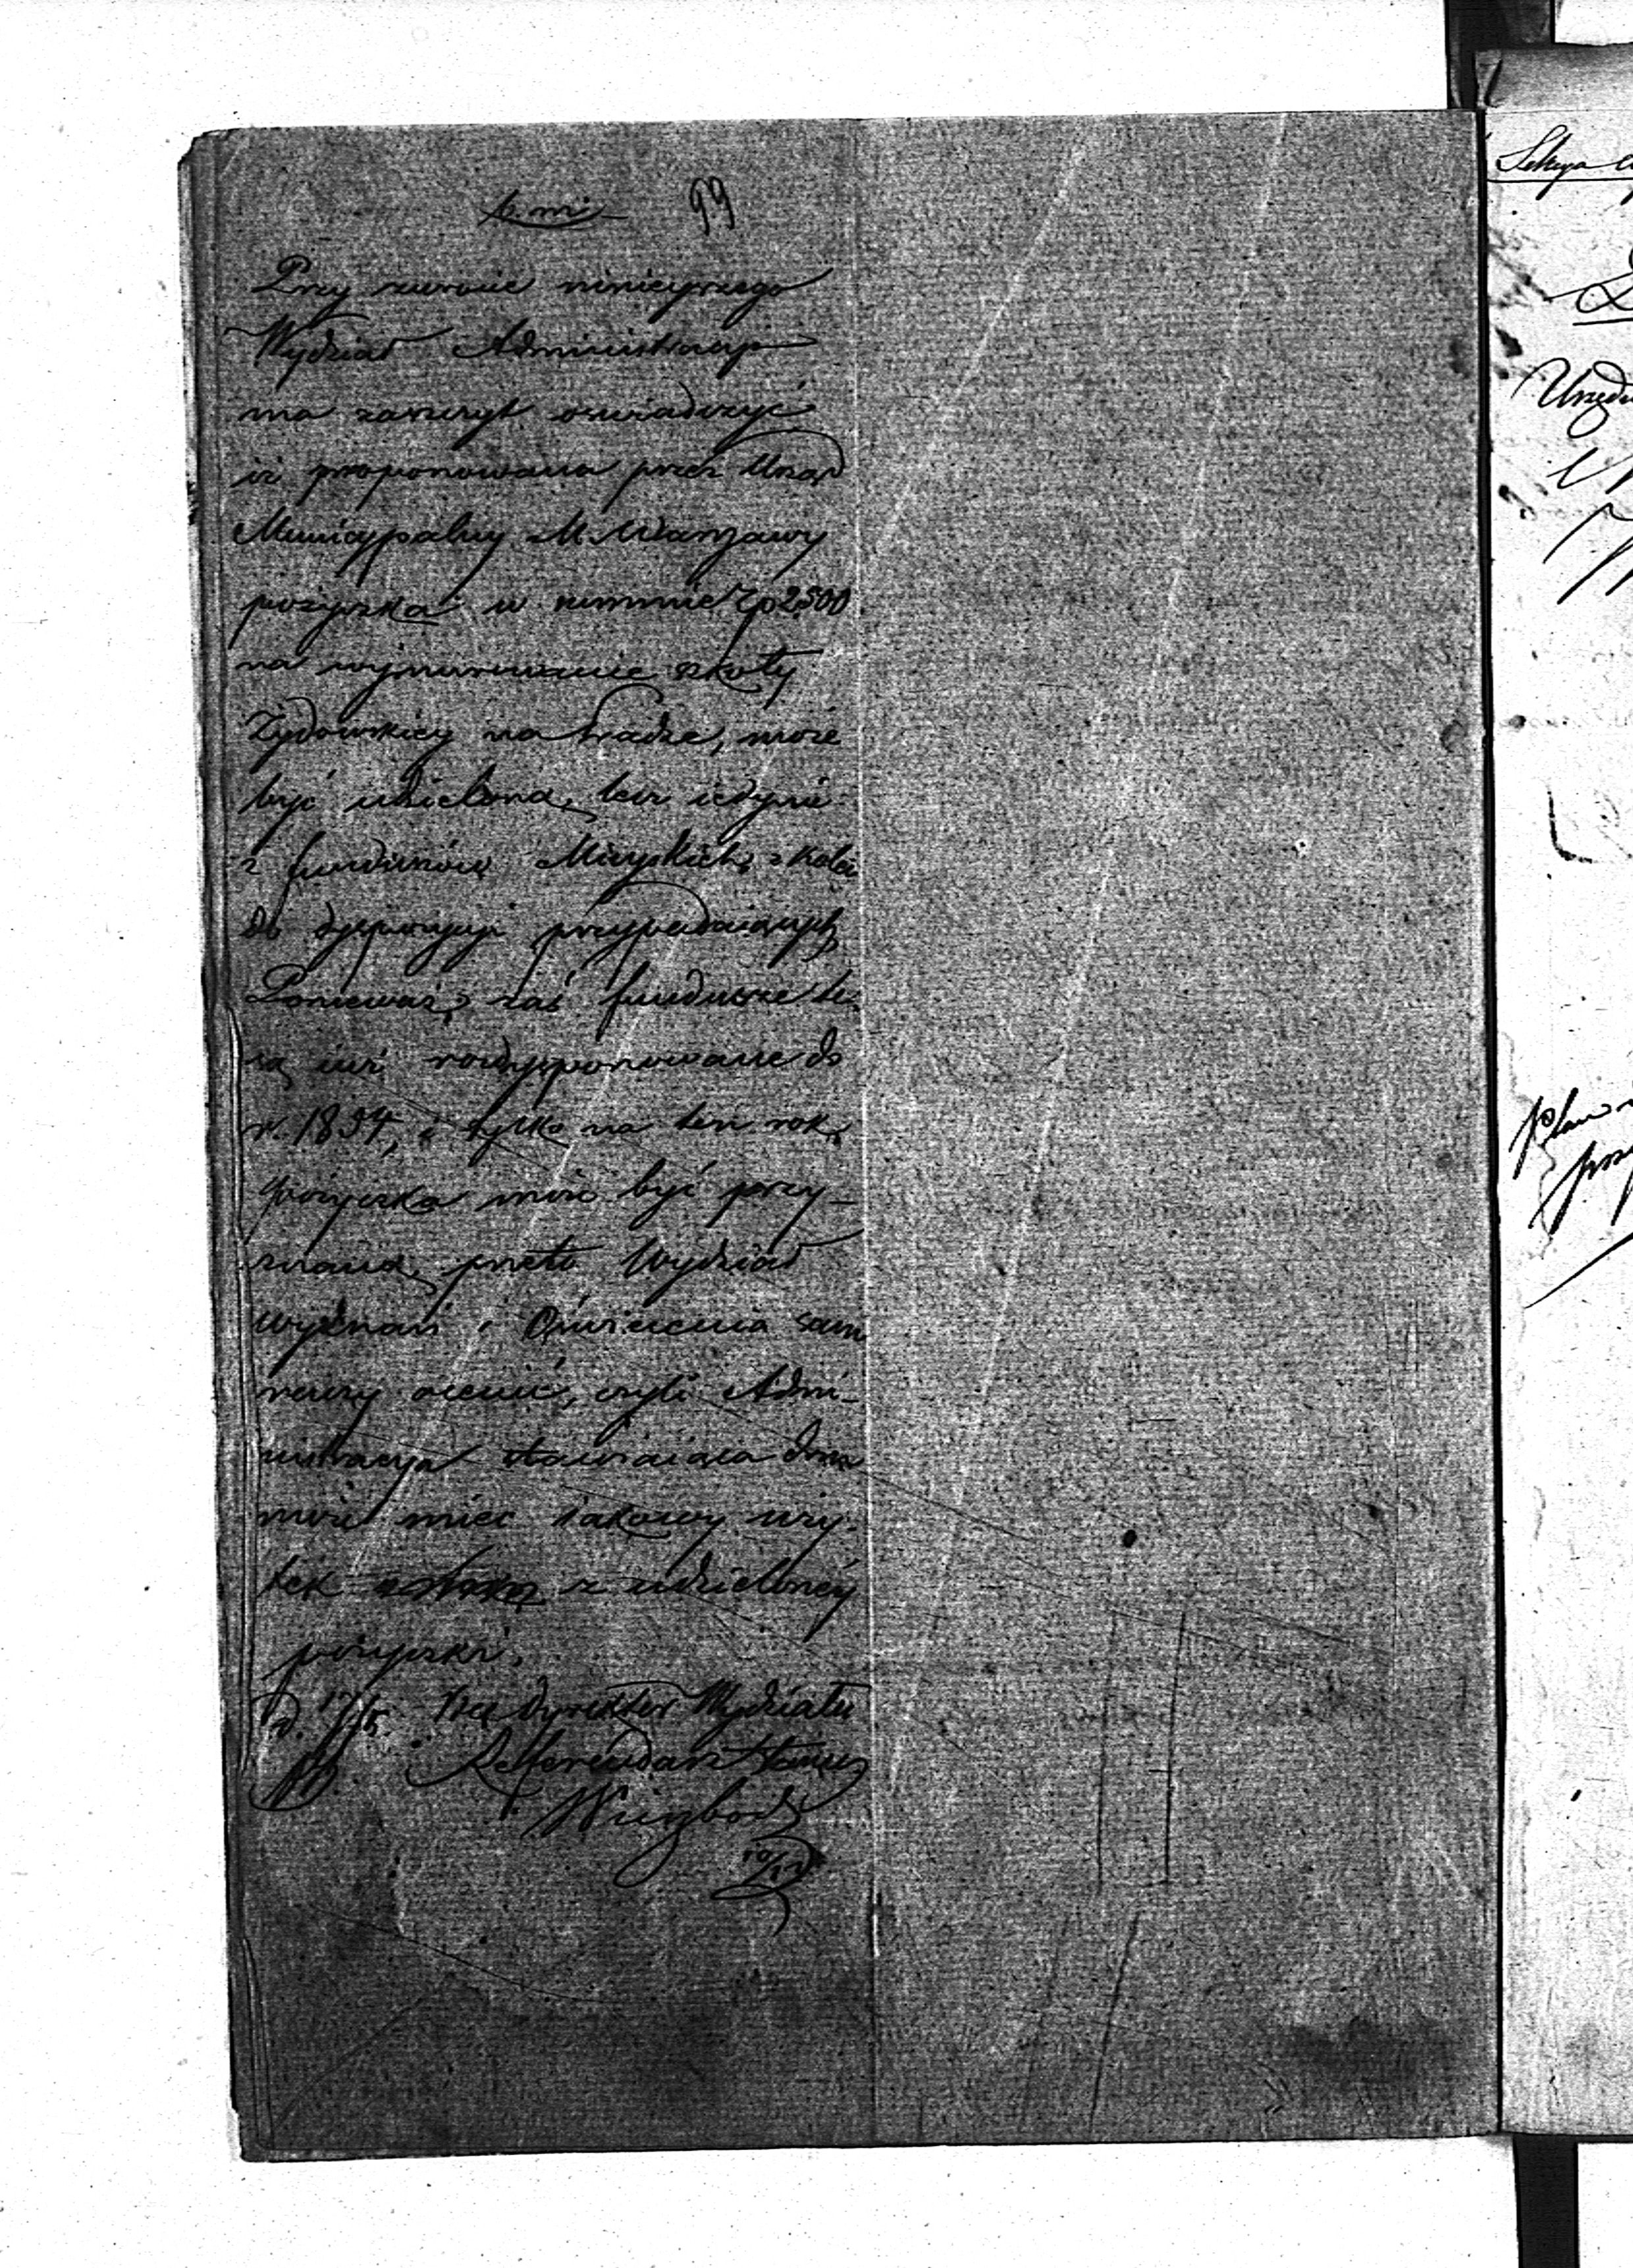 b. m. 99
Przy zwrocie ninieyszego
Wydział Administracyi
ma zaszczyt oswiadczyć
iż proponowana przez Urząd
Municypalny M. Warszawy
pożyczka w summie Zp 2,500
na wymurowanie szkoły
Żydowskiey na Pradze, może
być udzielona, lecz iedynie
z funduszów Mieyskich z kolei
do dyspozycyi przypadaiących
Ponieważ zaś fundusze te
są iuż rozdysponowane do
r. 1834, i tylko na ten rok
pożyczka może być przy-
znana, przeto Wydział
Wyznań i Oświecenia sam
raczy ocenić, czyli Admi-
nistracya stawiaiąca dom
może mieć iakowy uży-
tek z udzieloney
pożyczki.
d. 17/5. Dyrektor Wydziału
Referendarz Stanu
Sekcya
Urzędu